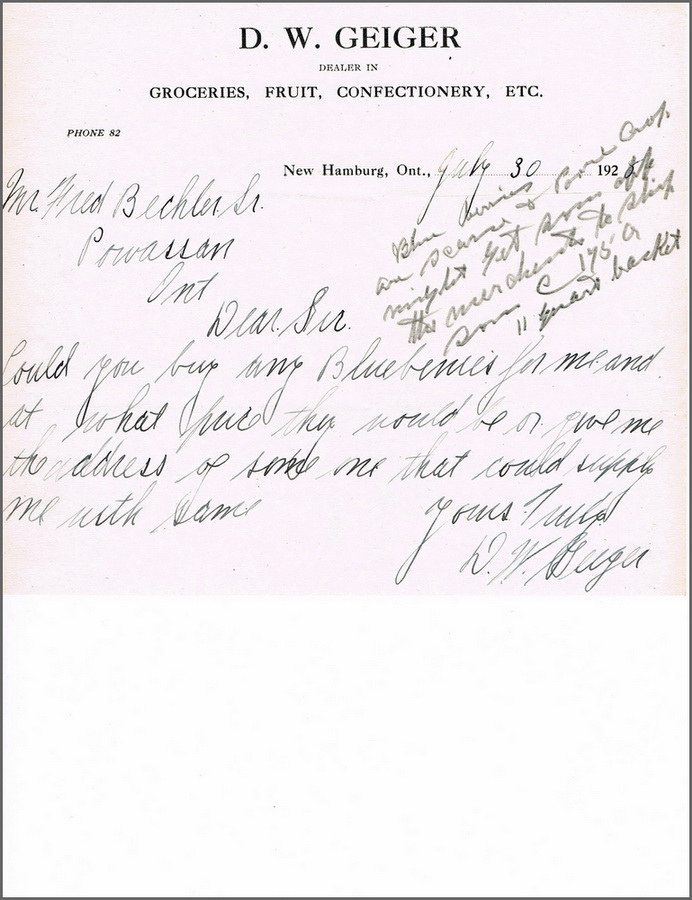 D. W. GEIGER
DEALER IN
GROCERIES, FRUIT, CONFECTIONERY, ETC.
PHONE 82
New Hamburg, Ont., July 30 1928
Mr. Fred Bechler Sr.
Powassan
Ont
Dear Sir.
Could you buy any Blueberries for me and
at what price they would be or give me
the address of some one that could supply
me with same
Yours Truly
D. W. Geiger
Blue berries
are scarce & Poor Crop
might get some off
the merchants to ship
some 175 a
11 quart basket